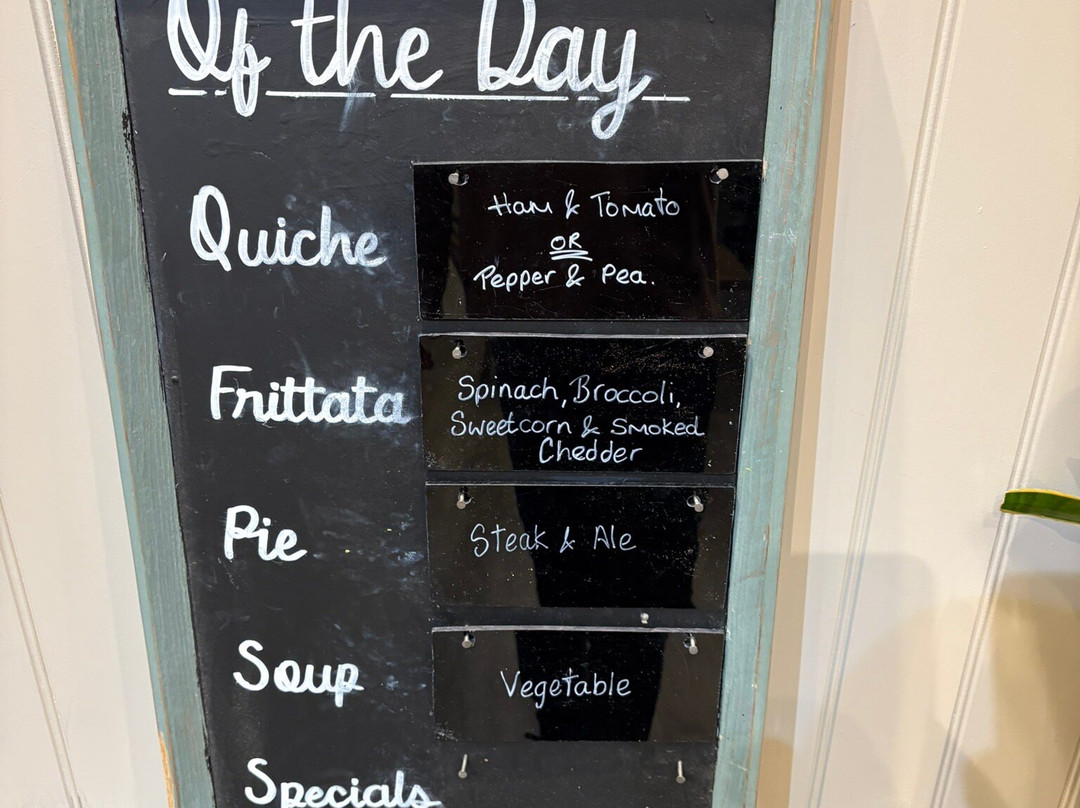 Of the Day
Quiche
Ham & Tomato
OR
Pepper & Pea.
Frittata
Spinach, Broccoli,
Sweetcorn & Smoked
Chedder
Pie
Steak & Ale
Soup
Vegetable
Specials